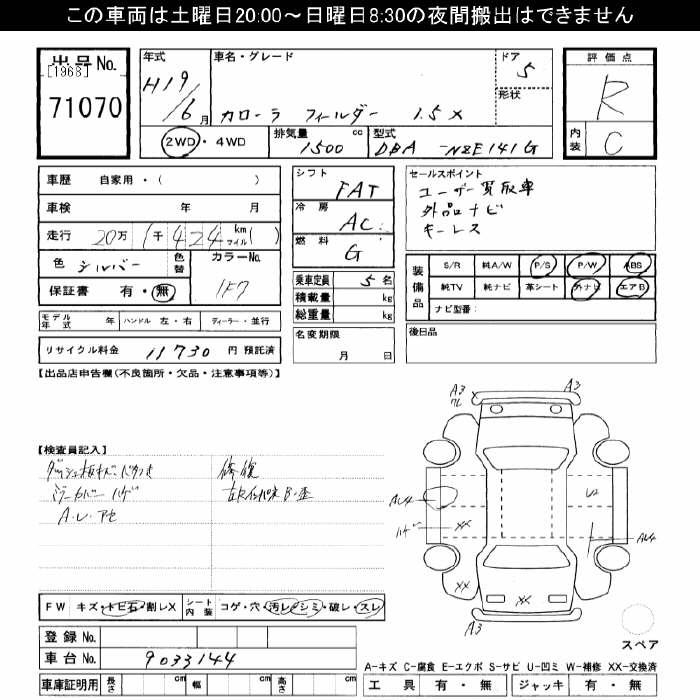 この車両は土曜日20:00～日曜日8:30の夜間搬出はできません
出品No.
[1968]
71070
年式 車名・グレード ドア
H19/6月 カローラ フィルダー 1.5X 5
形状
2WD・4WD 排気量 1500 cc 型式 DBA-NZE141G
評価点
R
内装 C
車歴 自家用・( )
車検 年 月
走行 20万 1千424 km マイル( )
色 シルバー 色替 カラーNo. 1F7
保証書 有・無
モデル年式 年 ハンドル 左・右 ディーラー・並行
リサイクル料金 11730 円 預託済
シフト FAT
冷房 AC
燃料 G
乗車定員 5 名
積載量 kg
総重量 kg
名変期限
月 日
セールスポイント
ユーザー買取車
外品ナビ
キーレス
装備品 S/R 純A/W P/S P/W ABS
純TV 純ナビ 革シート 外ナビ エアB
ナビ型番:
後日品
【出品店申告欄(不良箇所・欠品・注意事項等)】
【検査員記入】
修復
A・レ・アセ
A3
A3
AL4
U2
ハゲ
XX
AL4
XX
XX
A3
スペア
FW キズ・トビ石・割レX シート内装 コゲ・穴・汚レ・シミ・破レ・スレ
登録No.
車台No. 9033144
車庫証明用 長さ cm 幅 cm 高さ cm
A-キズ C-腐食 E-エクボ S-サビ U-凹ミ W-補修 XX-交換済
工具 有・無 ジャッキ 有・無